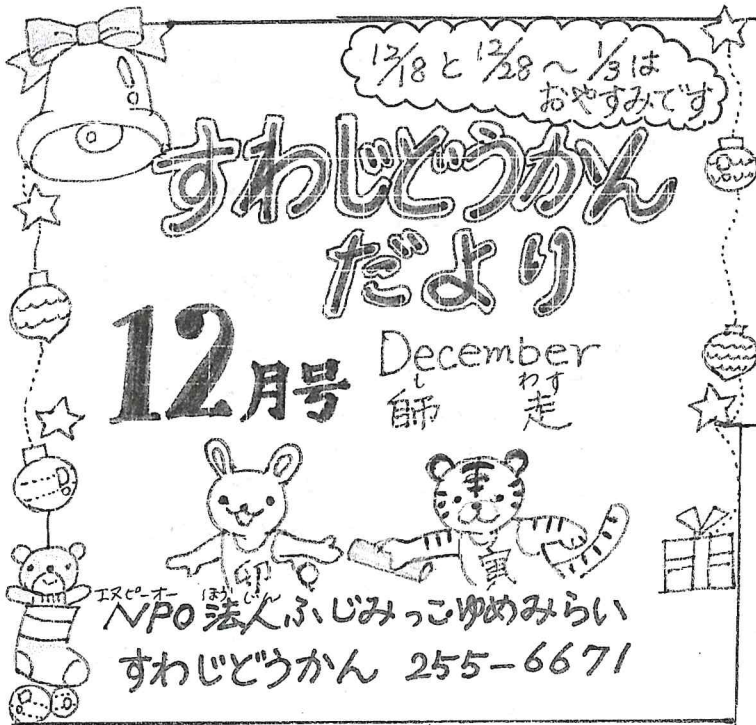 12/18と12/28～1/3は
おやすみです
すわじどうかん
だより
12月号
December
しわす
師走
卯
寅
エヌピーオー ほうじん
NPO法人ふじみっこゆめみらい
すわじどうかん 255-6671